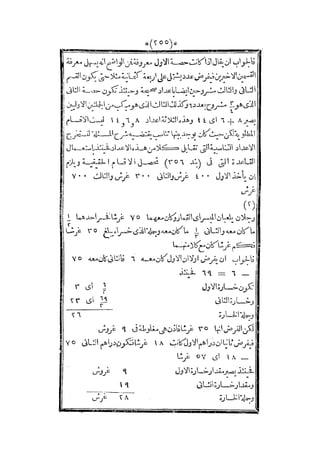 *(٢٥٥)*
فالجواب ان يقال اذا كانت حصة الاول معروفة فمن الواضح انه يسهل معرفة
القسمين الاخيرين فيفرض عدد يشتمل على اربعة كثمانية مثلا حتى يكون القسم
الثانى والثالث مشروحين ايضا باعداد صحيحة وحينئذ تكون حصة الثانى
الذى هو مشروح بعدد ٦ وكذلك الثالث الذى هو مركب من الحصتين الاولين
يصير ٨ + ٦ اى ١٤ وهذه الثلاثة اعداد ٨ و ٦ و ١٤ ليست الاقسام
المطلوبة لكن حيث كان يوجد بينها تناسب يقتضيه شرح المسئلة تستخرج
الاعداد المناسبة التى تقابل كلا من هذه الاعداد فحينئذ باستعمال
القاعدة التى فى (بند ٣٥٦) تتحصل الاقسام الحقيقية ويلزم
ان يأخذ الاول ٤٠٠ غرش والثانى ٣٠٠ غرش والثالث ٧٠٠
غرش
(٢)
رجلان يلعبان الميسر اى القمار وكان معهما ٧٥ غرشا فخسر احدهما
ما كان معه والثانى ما كان معه وجملة الذى خسراه يبلغ ٣٥ غرشا
فكم غرشا كان مع كل منهما
فالجواب ان يفرض اولا ان الاول كان معه ٦ فالثانى كان معه ٧٥
— ٦ = ٦٩ فحينئذ
تكون خسارة الاول ٦/٢ اى ٣
وخسارة الثانى ٦٩/٣ اى ٢٣
وجملة الخسارة ٢٦
لكن الفرض انها ٣٥ غرشا فاذن هى مغلوطة فى ٩ غروش
فيفرض ثانيا ان دراهم الاول كانت ١٨ غرشا فتكون دراهم الثانى ٧٥
— ١٨ اى ٥٧ غرشا
فحينئذ يصير مقدار خسارة الاول ٩ غروش
ومقدار خسارة الثانى ١٩
وجملة الخسارة ٢٨ غرش